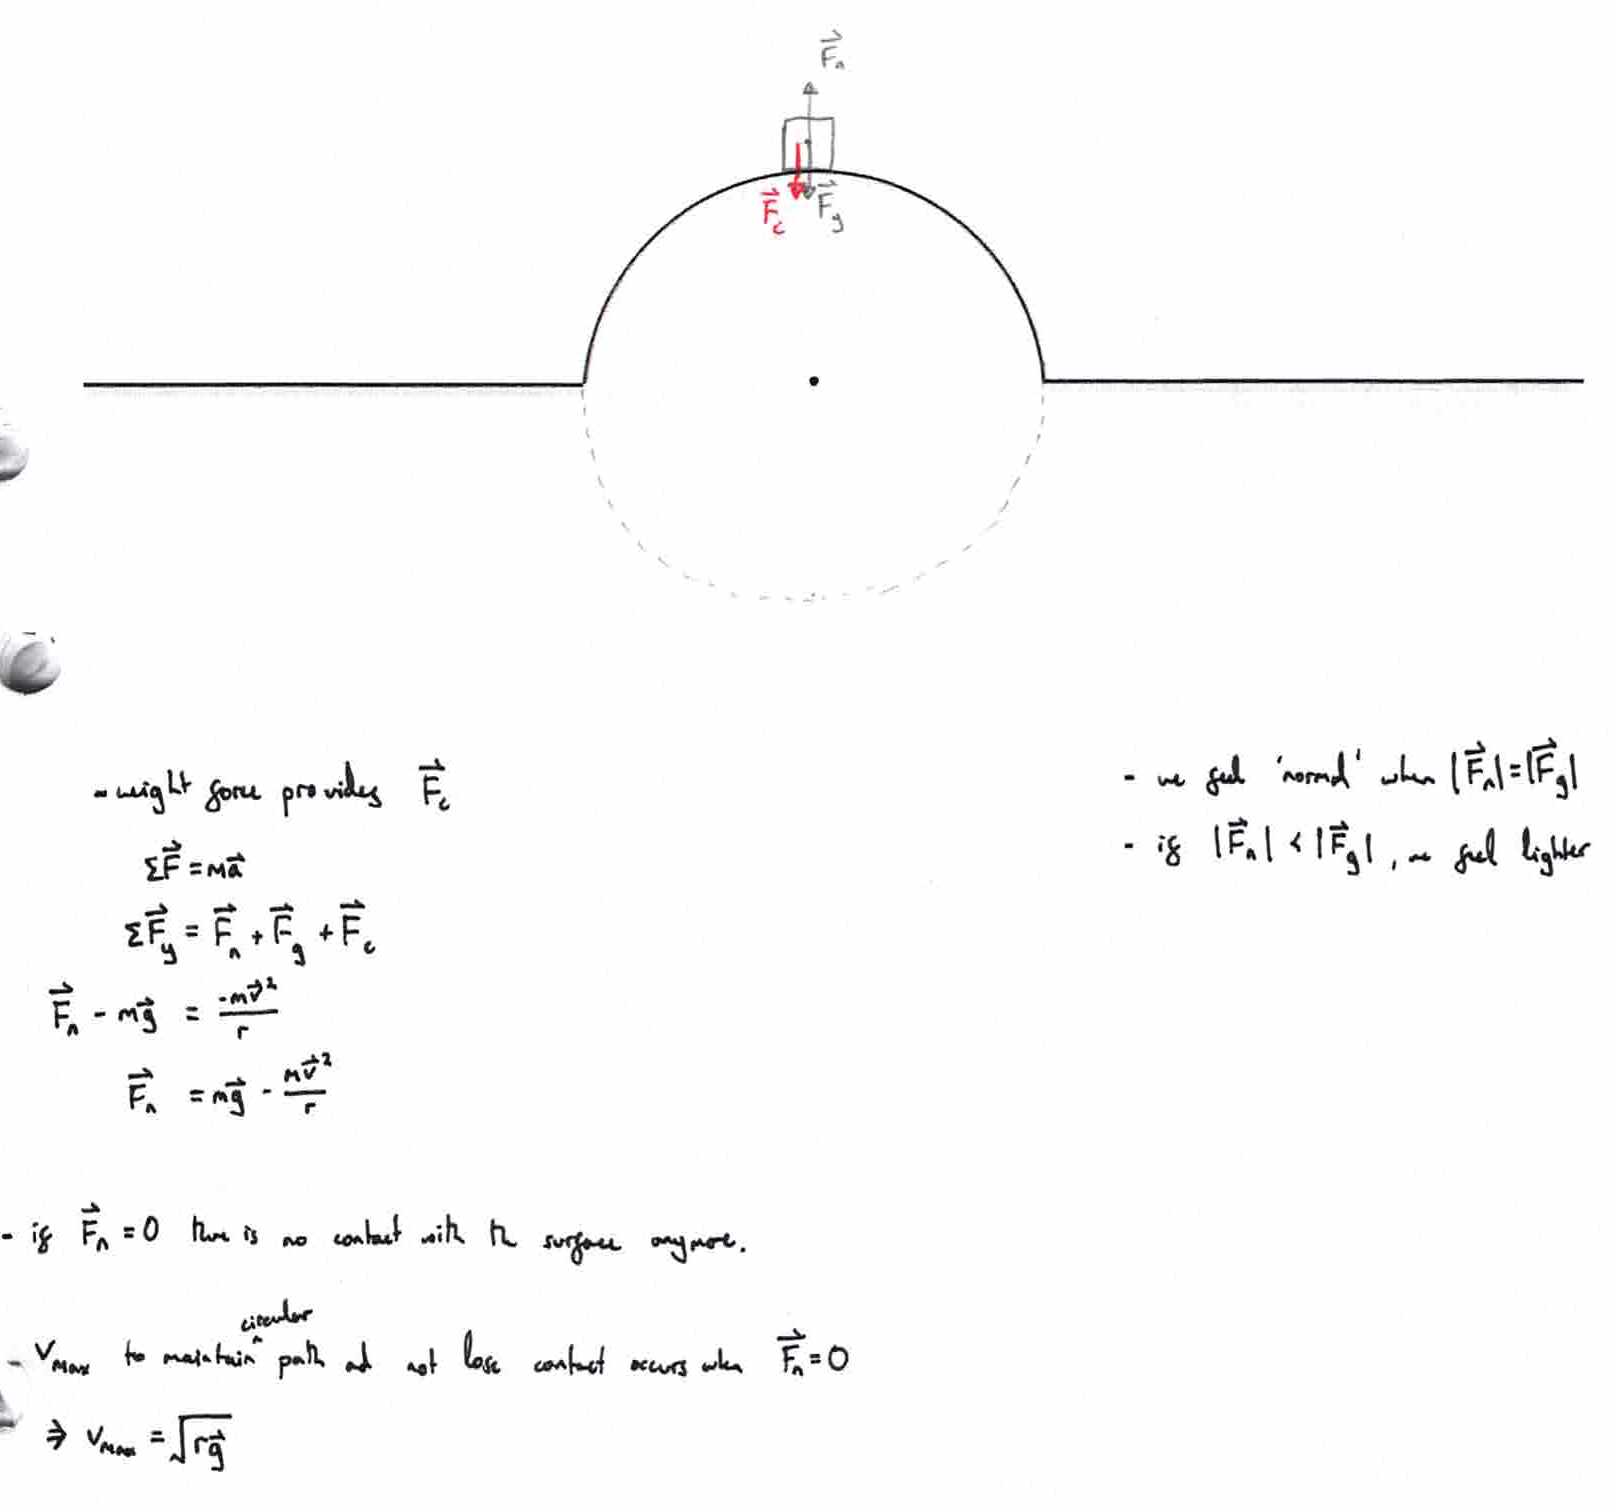 F⃗n
F⃗c F⃗g
- weight force provides F⃗c
ΣF⃗ = ma⃗
ΣF⃗y = F⃗n + F⃗g + F⃗c
F⃗n - mg⃗ = -mv⃗²/r
F⃗n = mg⃗ - mv⃗²/r
- we feel 'normal' when |F⃗n| = |F⃗g|
- if |F⃗n| < |F⃗g|, we feel lighter
- if F⃗n = 0 there is no contact with the surface anymore.
- vmax to maintain ^circular path and not lose contact occurs when F⃗n = 0
⇒ vmax = √rg⃗